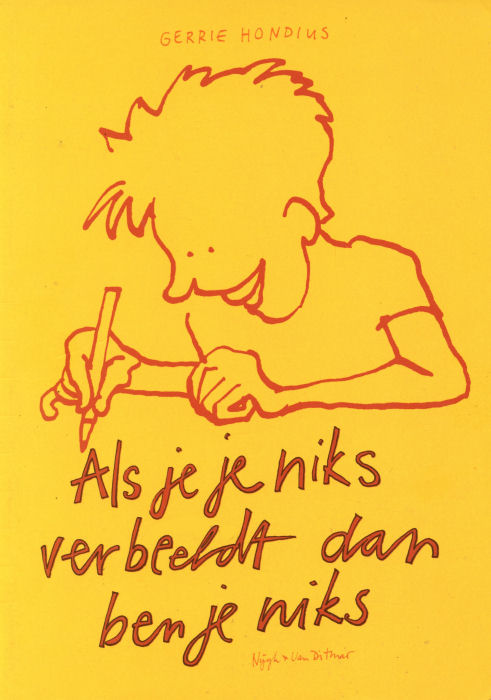 GERRIE HONDIUS
Als je je niks
verbeeldt dan
ben je niks
Nijgh & Van Ditmar